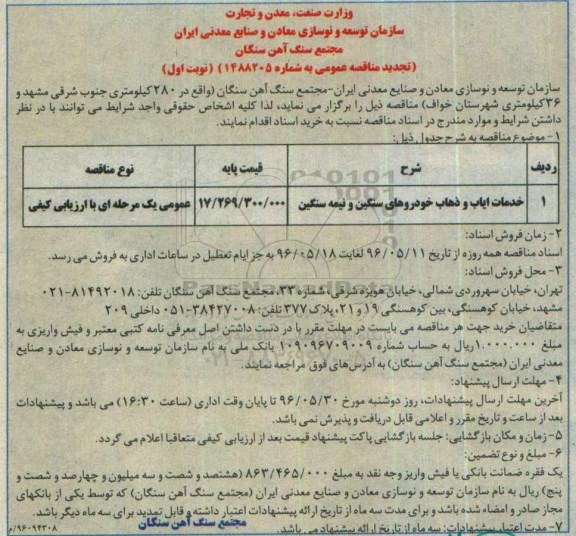 وزارت صنعت، معدن و تجارت
سازمان توسعه و نوسازی معادن و صنایع معدنی ایران
مجتمع سنگ آهن سنگان
(تجدید مناقصه عمومی به شماره ۱۴۸۸۲۰۵) (نوبت اول)
سازمان توسعه و نوسازی معادن و صنایع معدنی ایران-مجتمع سنگ آهن سنگان (واقع در ۲۸۰ کیلومتری جنوب شرقی مشهد و
۳۶ کیلومتری شهرستان خواف) مناقصه ذیل را برگزار می نماید، لذا کلیه اشخاص حقوقی واجد شرایط می توانند با در نظر
داشتن شرایط و موارد مندرج در اسناد مناقصه نسبت به خرید اسناد اقدام نمایند.
۱- موضوع مناقصه به شرح جدول ذیل:
ردیف شرح قیمت پایه نوع مناقصه
۱ خدمات ایاب و ذهاب خودروهای سنگین و نیمه سنگین ۱۷/۲۶۹/۳۰۰/۰۰۰ عمومی یک مرحله ای با ارزیابی کیفی
۲- زمان فروش اسناد:
اسناد مناقصه همه روزه از تاریخ ۹۶/۰۵/۱۱ لغایت ۹۶/۰۵/۱۸ به جز ایام تعطیل در ساعات اداری به فروش می رسد.
۳- محل فروش اسناد:
تهران، خیابان سهروردی شمالی، خیابان هویزه شرقی، شماره ۳۳، مجتمع سنگ آهن سنگان تلفن: ۸۱۴۹۲۰۱۸-۰۲۱
مشهد، خیابان کوهسنگی، بین کوهسنگی ۱۹ و ۲۱، پلاک ۳۷۷ تلفن: ۳۸۴۲۷۰۰۸-۰۵۱ داخلی ۲۰۹
متقاضیان خرید جهت هر مناقصه می بایست در مهلت مقرر با در دست داشتن اصل معرفی نامه کتبی معتبر و فیش واریزی به
مبلغ ۱.۰۰۰.۰۰۰ ریال به حساب شماره ۰۱۰۹۰۹۶۷۰۹۰۰۹ بانک ملی به نام سازمان توسعه و نوسازی معادن و صنایع
معدنی ایران (مجتمع سنگ آهن سنگان) به آدرس‌های فوق مراجعه نمایند.
۴- مهلت ارسال پیشنهاد:
آخرین مهلت ارسال پیشنهادات، روز دوشنبه مورخ ۹۶/۰۵/۳۰ تا پایان وقت اداری (ساعت ۱۶:۳۰) می باشد و پیشنهادات
بعد از ساعت و تاریخ مقرر و اعلامی قابل دریافت و پذیرش نمی باشد.
۵- زمان و مکان بازگشایی: جلسه بازگشایی پاکت پیشنهاد قیمت بعد از ارزیابی کیفی متعاقبا اعلام می گردد.
۶- مبلغ و نوع تضمین:
یک فقره ضمانت بانکی یا فیش واریز وجه نقد به مبلغ ۸۶۳/۴۶۵/۰۰۰ (هشتصد و شصت و سه میلیون و چهارصد و شصت و
پنج) ریال به نام سازمان توسعه و نوسازی معادن و صنایع معدنی ایران (مجتمع سنگ آهن سنگان) که توسط یکی از بانکهای
مجاز صادر و امضاء شده باشد و برای مدت سه ماه از تاریخ ارائه پیشنهادات اعتبار داشته و قابل تمدید برای سه ماه دیگر باشد.
۷- مدت اعتبار پیشنهادات: سه ماه از تاریخ ارائه پیشنهاد می باشد.
مجتمع سنگ آهن سنگان
۹۶۰۹۴۳۰۸/م